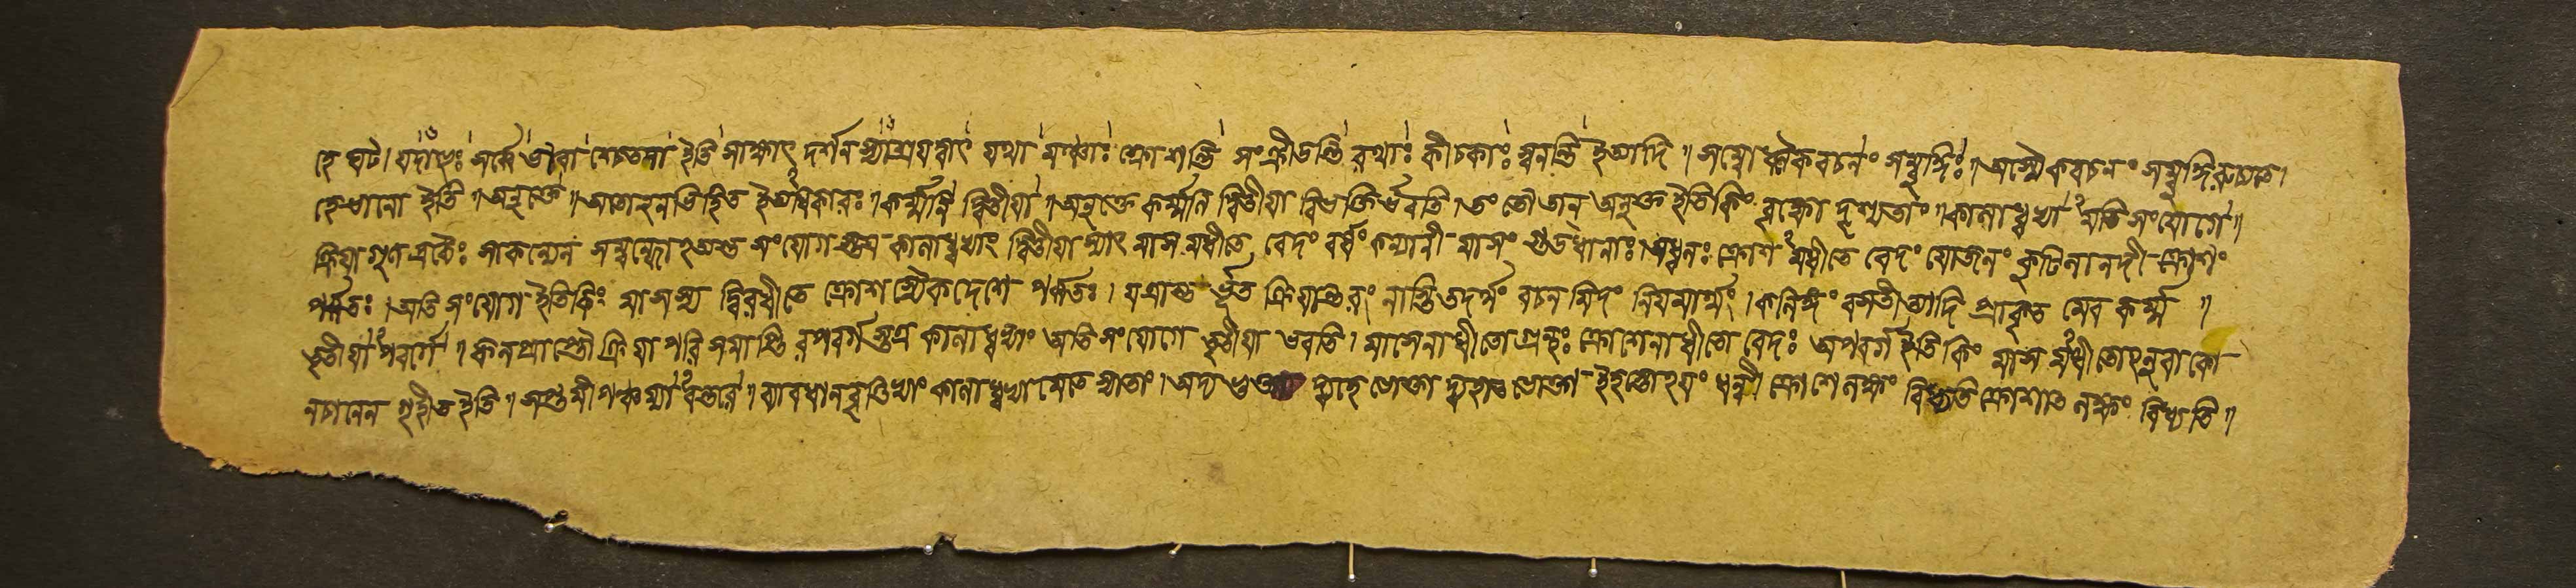 হে ঘট। যদাহুঃ সর্ব্বে ভাবা শ্চেতনা ইতি সাক্ষাৎ দর্শন স্যাশ্রয়ত্বাৎ যথা মঞ্চাঃ ক্রোশন্তি সংক্রীডন্তি রথাঃ কীচকাঃ স্বনন্তি ইত্যাদি॥ সম্বোধনৈকবচনং সম্বুদ্ধিঃ। অস্যৈকবচনং সম্বুদ্ধিরুচ্যতে।
ইতি॥ অনুক্তে॥ ইত্যধিকারঃ॥ কর্ম্মণি দ্বিতীয়া॥ অনুক্তে কর্ম্মনি দ্বিতীয়া বিভক্তির্ভবতি। তং তৌ তান্ অনুক্ত ইতিকিং বৃক্ষো দৃশ্যতাং॥ কালাধ্বভ্যা মতি সংযোগে॥
ক্রিয়া গুণ দ্রব্যৈঃ সাকল্যেন সম্বন্ধোঽত্যন্ত সংযোগ স্তত্র কালাধ্বভ্যাং দ্বিতীয়া স্যাৎ মাস মধীতে বেদং বর্ষং কল্যানী মাসং গুডধানাঃ। অধ্বনঃ ক্রোশ মধীতে বেদং যোজনং কুটিলা নদী ক্রোশং
পর্ব্বতঃ। অতি সংযোগ ইতিকিং মাসস্য দ্বিরধীতে ক্রোশ স্যৈকদেশে পর্ব্বতঃ। ক্রিয়ান্তরং নাস্তি তদর্থং বচন মিদং নিয়মার্থং। প্রাকৃত মেব কর্ম্ম॥
তৃতীয়া পবর্গে॥ ফলপ্রাপ্তৌ ক্রিয়া পরি সমাপ্তি রপবর্গ স্তত্র কালাধ্বভ্যাং অতি সংযোগে তৃতীয়া ভবতি। মাসেনাধীতো গ্রন্থঃ ক্রোশেনাধীতো বেদঃ অপবর্গ ইতি কিং মাস মধীতোঽনুবাকো
নচানেন গৃহীত ইতি॥ সপ্তমী পঞ্চম্যা বন্তরে॥ কালাধ্বভ্যা মেতে স্যাতাং। অদ্য ভুক্ত্বা দ্ব্যহে ভোক্তা দ্ব্যহাদ্ভোক্তা ইহস্থোঽয়ং ধন্বী ক্রোশে লক্ষং বিধ্যতি ক্রোশাৎ লক্ষং বিধ্যতি॥